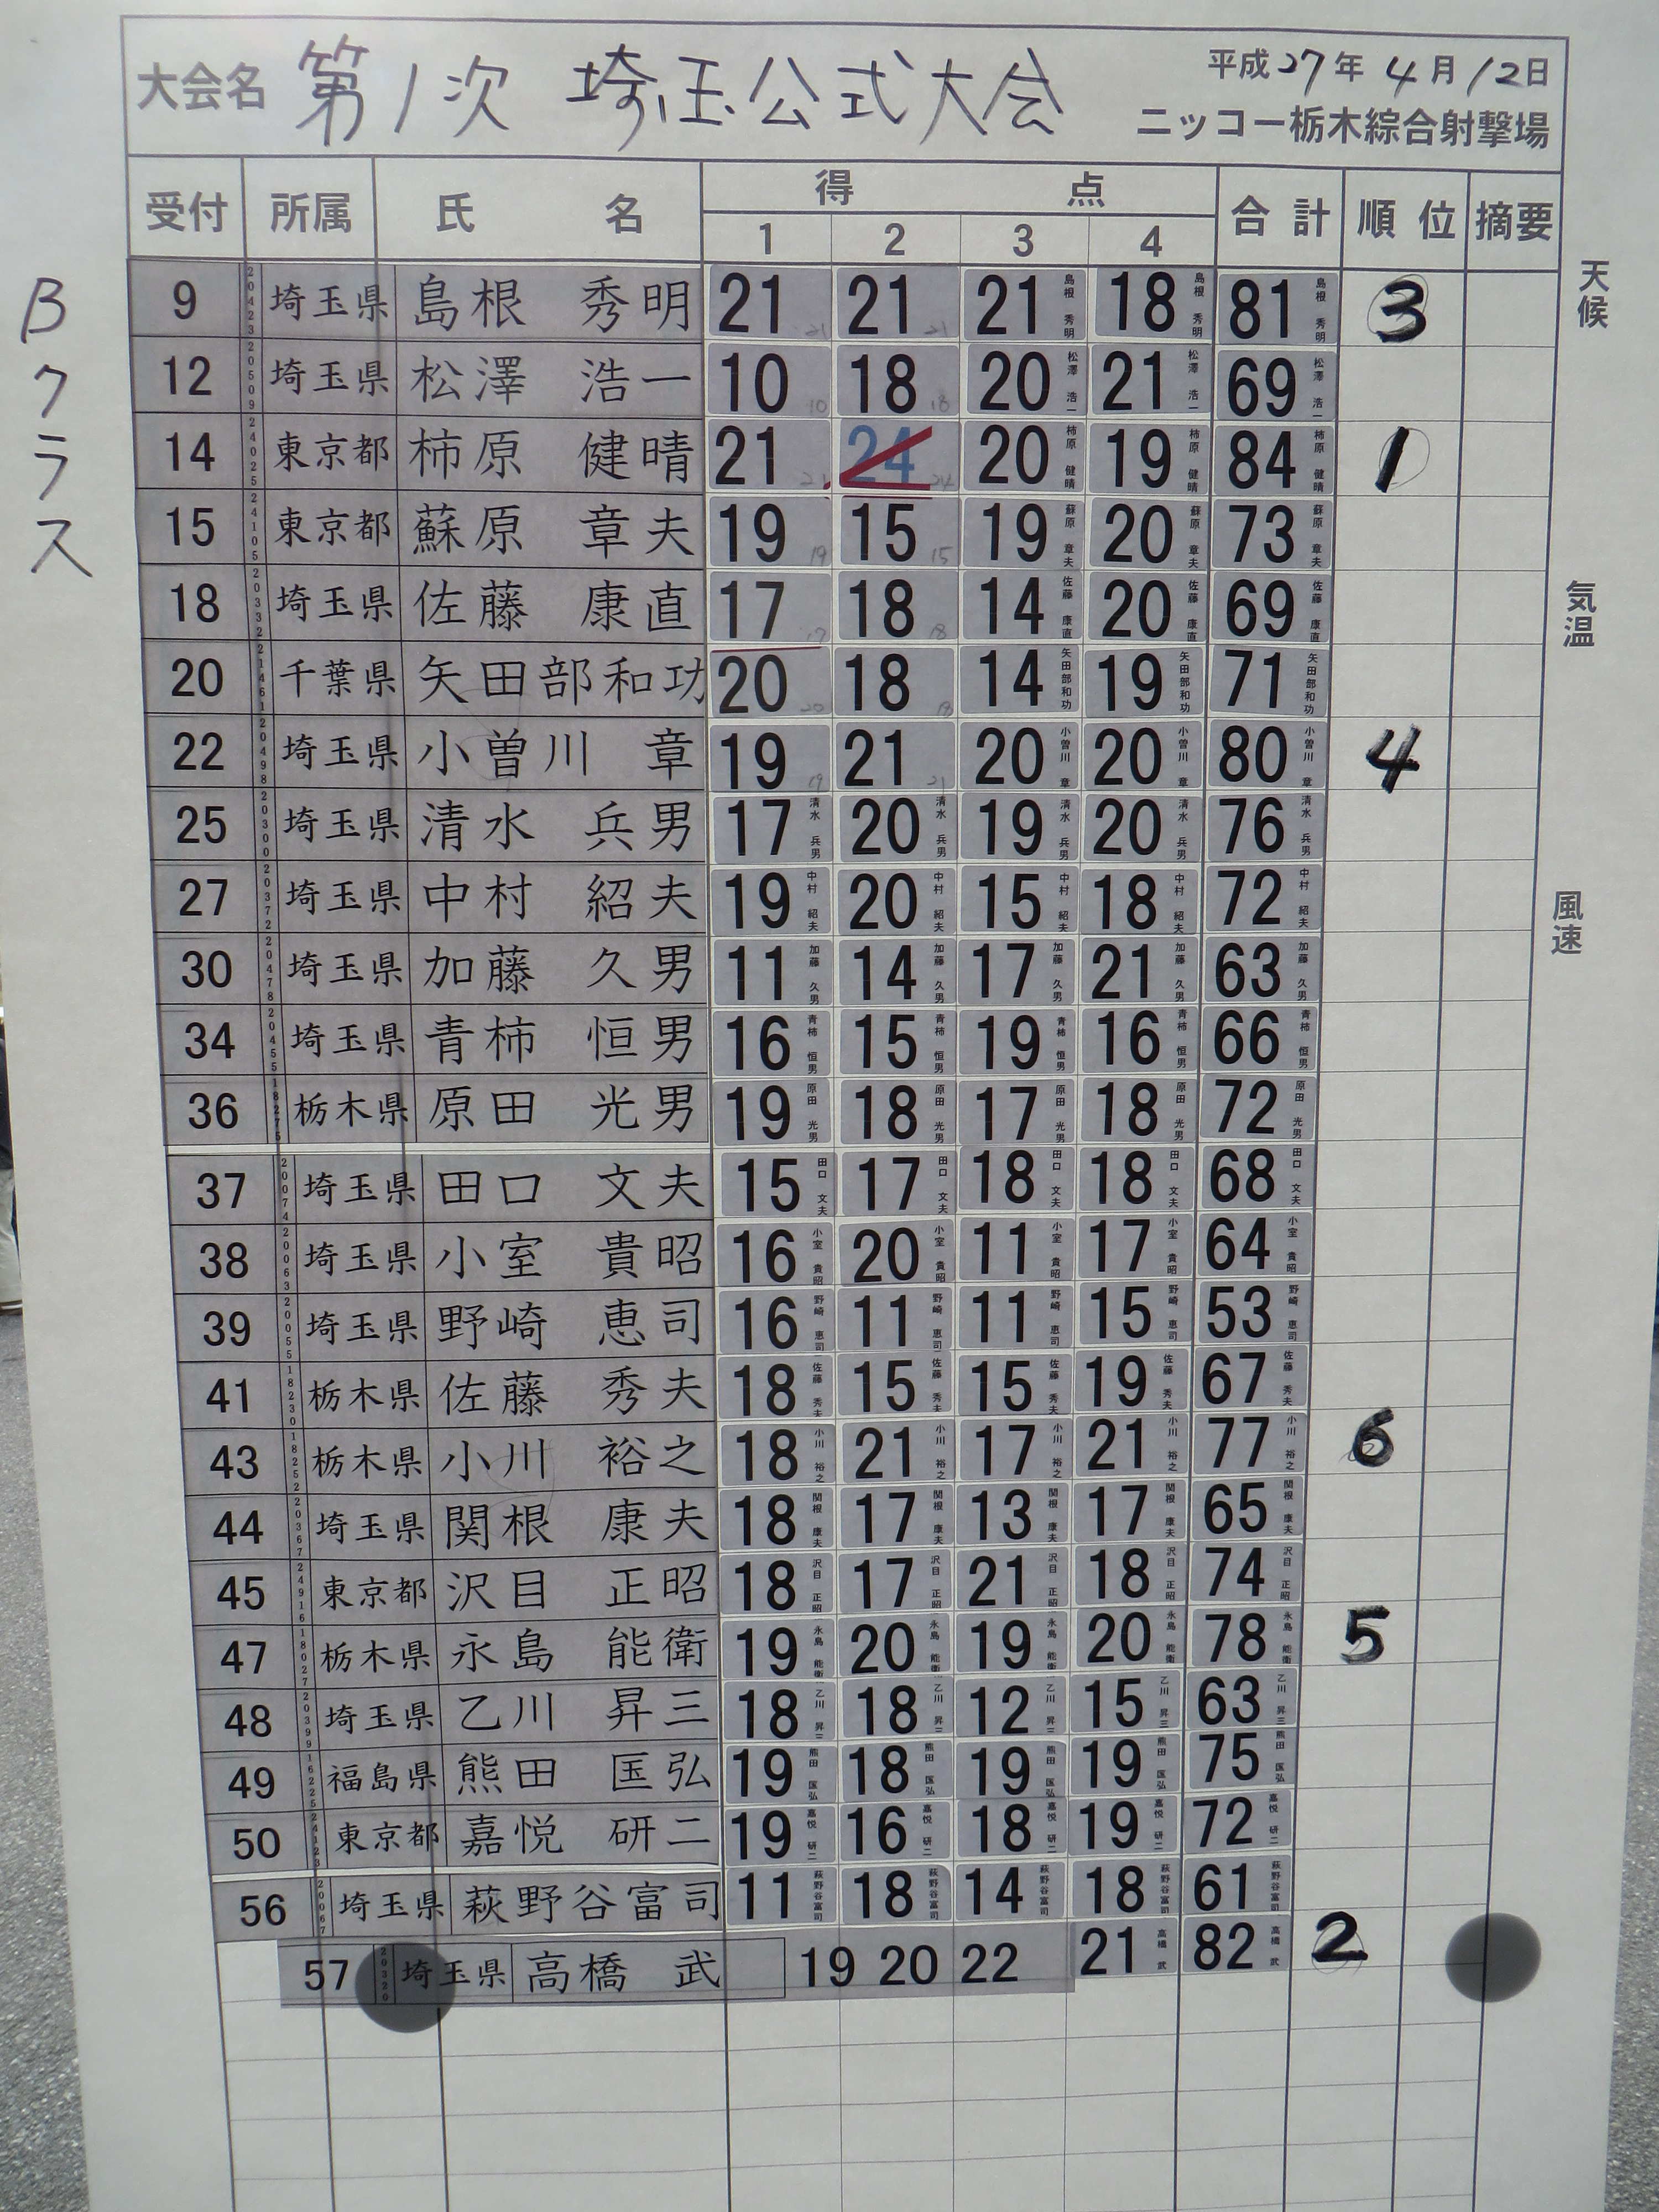 大会名 第1次 埼玉公式大会 平成27年 4月12日
ニッコー栃木綜合射撃場
受付 所属 氏名 得点 合計 順位 摘要
1 2 3 4
Bクラス
天候
気温
風速
9 埼玉県 島根 秀明 21 21 21 18 81 3
12 埼玉県 松澤 浩一 10 18 20 21 69
14 東京都 柿原 健晴 21 24 20 19 84 1
15 東京都 蘇原 章夫 19 15 19 20 73
18 埼玉県 佐藤 康直 17 18 14 20 69
20 千葉県 矢田部和功 20 18 14 19 71
22 埼玉県 小曽川 章 19 21 20 20 80 4
25 埼玉県 清水 兵男 17 20 19 20 76
27 埼玉県 中村 紹夫 19 20 15 18 72
30 埼玉県 加藤 久男 11 14 17 21 63
34 埼玉県 青柿 恒男 16 15 19 16 66
36 栃木県 原田 光男 19 18 17 18 72
37 埼玉県 田口 文夫 15 17 18 18 68
38 埼玉県 小室 貴昭 16 20 11 17 64
39 埼玉県 野崎 恵司 16 11 11 15 53
41 栃木県 佐藤 秀夫 18 15 15 19 67
43 栃木県 小川 裕之 18 21 17 21 77 6
44 埼玉県 関根 康夫 18 17 13 17 65
45 東京都 沢目 正昭 18 17 21 18 74
47 栃木県 永島 能衛 19 20 19 20 78 5
48 埼玉県 乙川 昇三 18 18 12 15 63
49 福島県 熊田 匡弘 19 18 19 19 75
50 東京都 嘉悦 研二 19 16 18 19 72
56 埼玉県 萩野谷富司 11 18 14 18 61
57 埼玉県 高橋 武 19 20 22 21 82 2